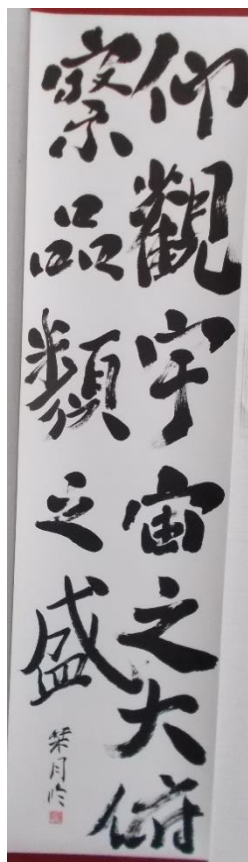 仰觀宇宙之大俯
察品類之盛
栞月吟